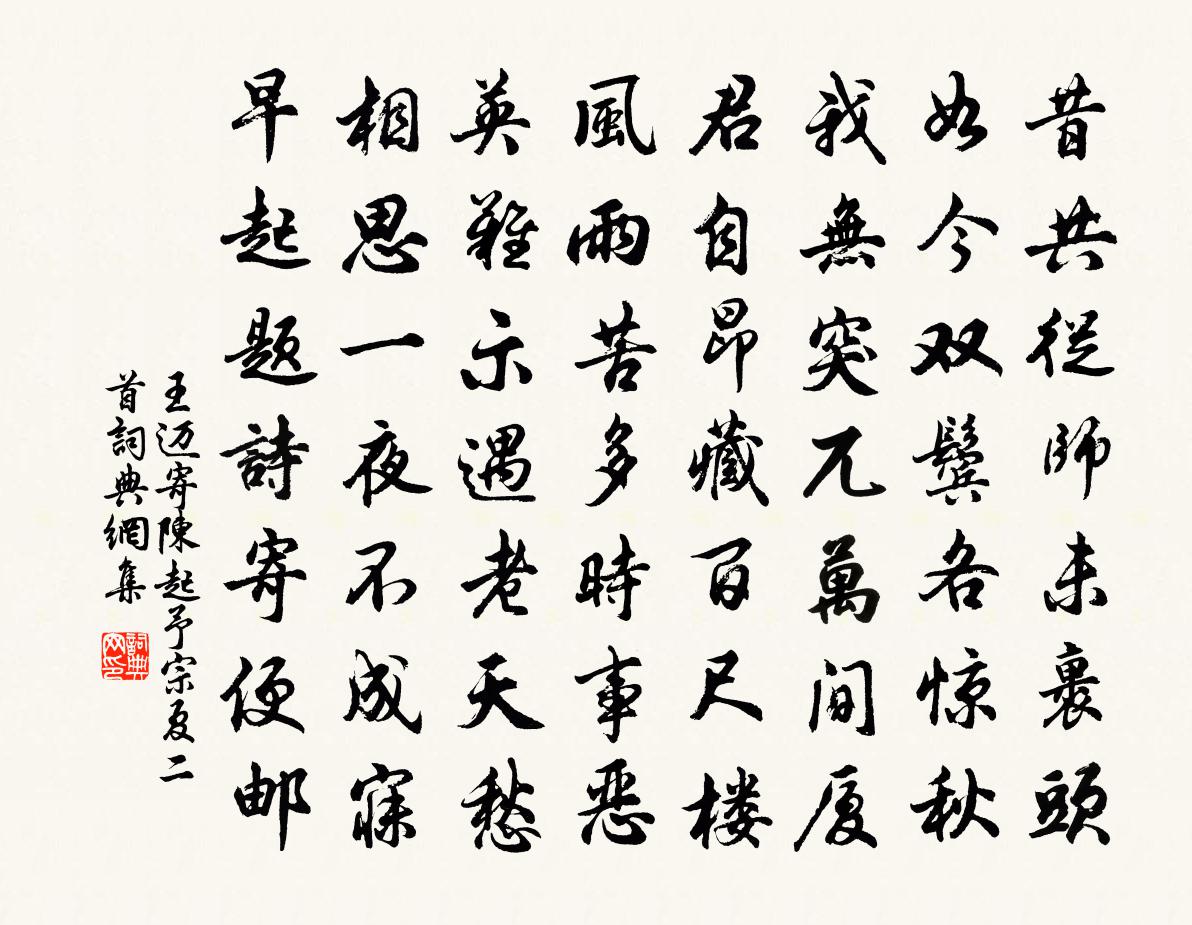 昔共從師未裹頭
如今双鬓各惊秋
我無突兀萬間厦
君自昂藏百尺楼
風雨苦多時事恶
英難示遇老天愁
相思一夜不成寐
早起题詩寄便邮
王迈寄陳起予宗夏二
首詞典網集